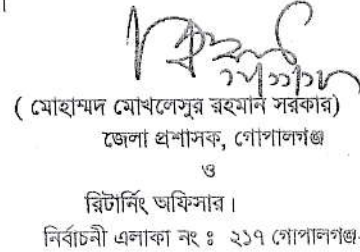 ( মোহাম্মদ মোখলেসুর রহমান সরকার)
জেলা প্রশাসক, গোপালগঞ্জ
ও
রিটার্নিং অফিসার।
নির্বাচনী এলাকা নং ঃ ২১৭ গোপালগঞ্জ-